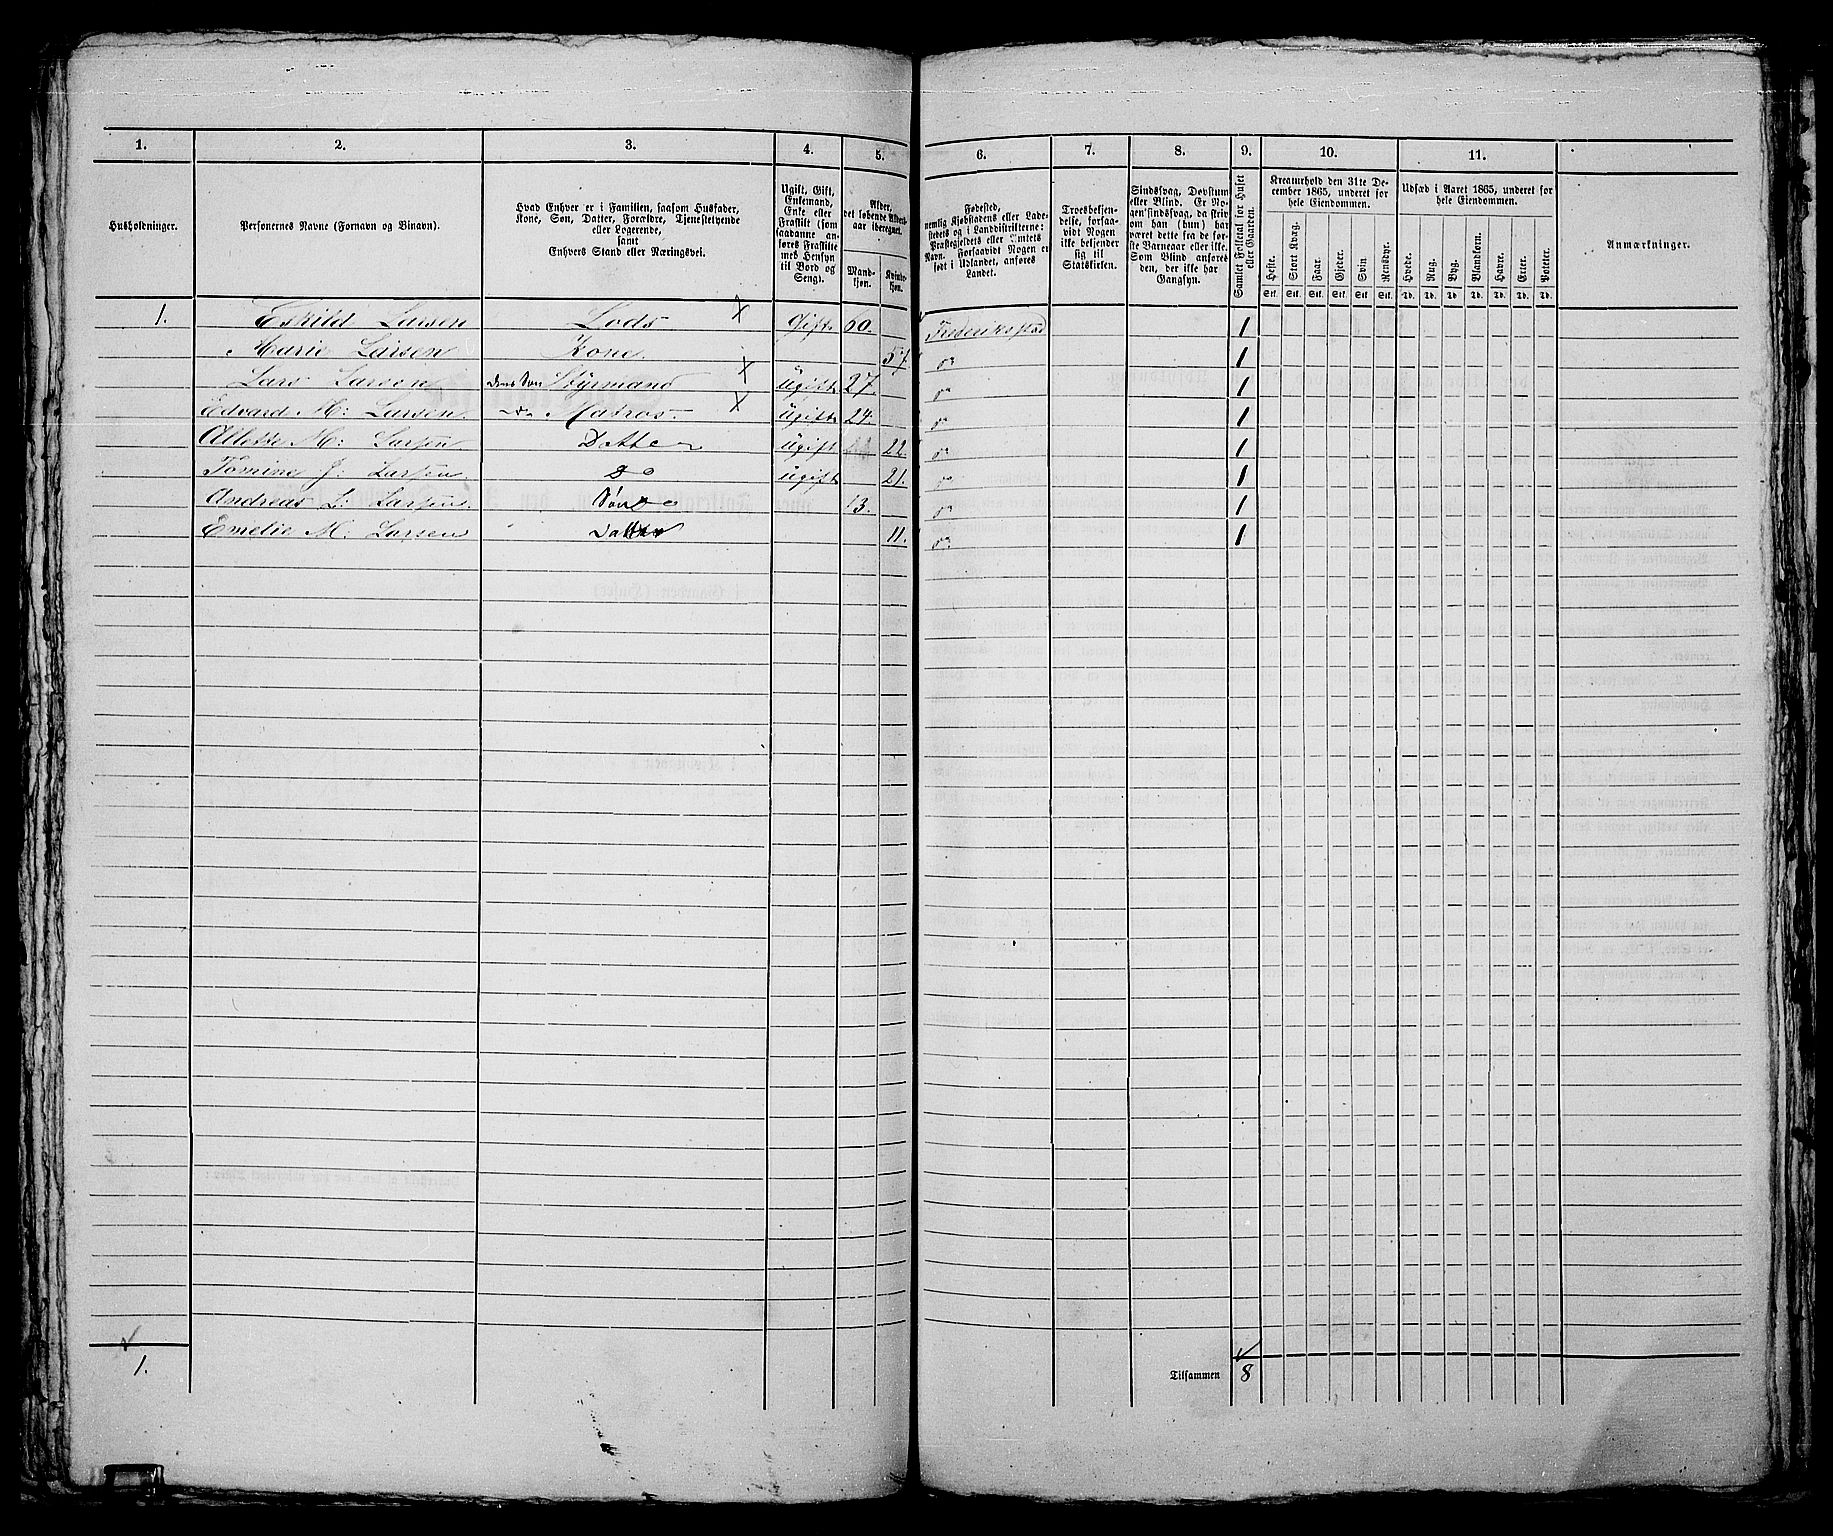 1. 2. 3. 4. 5. 6. 7. 8. 9. 10. 11.
Husholdninger.
Personernes Navne (Fornavn og Binavn).
Hvad Enhver er i Familien, saasom Husfader,
Kone, Søn, Datter, Forældre, Tjenestetyende
eller Logerende,
samt
Enhvers Stand eller Næringsvei.
Ugift, Gift,
Enkemand,
Enke eller
Fraskilt (som
saadanne an-
føres Fraskilte
med Hensyn
til Bord og
Seng).
Alder,
det løbende Alders-
aar iberegnet.
Mand-
kjøn.
Kvinde-
kjøn.
Fødested,
nemlig Kjøbstadens eller Lade-
stedets og i Landdistrikterne:
Præstegjeldets eller Amtets
Navn. Forsaavidt Nogen er
født i Udlandet, anføres
Landet.
Troesbekjen-
delse, forsaa-
vidt Nogen
ikke bekjender
sig til
Statskirken.
Sindssvag, Døvstum
eller Blind. Er No-
gen sindssvag, da skriv
om han (hun) har
været dette fra de før-
ste Barneaar eller ikke.
Som Blind anføres
den, der ikke har
Gangsyn.
Samlet Folketal for Huset
eller Gaarden.
Kreaturhold den 31te De-
cember 1865, underet for
hele Eiendommen.
Heste. Stort Kvæg. Faar. Gjeder. Svin. Rensdyr.
Stk. Stk. Stk. Stk. Stk. Stk.
Udsæd i Aaret 1865, underet for
hele Eiendommen.
Hvede. Rug. Byg. Blandkorn. Havre. Erter. Poteter.
Td. Td. Td. Td. Td. Td. Td.
Anmærkninger.
1. Eskild Larsen Lods X Gift 60. Frederiksstad 1
Marie Larsen Kone 57. do 1
Lars Larsen deres Søn Styrmand X Ugift 27. do 1
Edvard M: Larsen do Matros X Ugift 24. do 1
Allette M: Larsen Datter Ugift 22. do 1
Tomine J: Larsen do Ugift 21. do 1
Andreas L: Larsen Søn 13. do 1
Emelie M. Larsen Datter 11. do 1
1.
Tilsammen 8